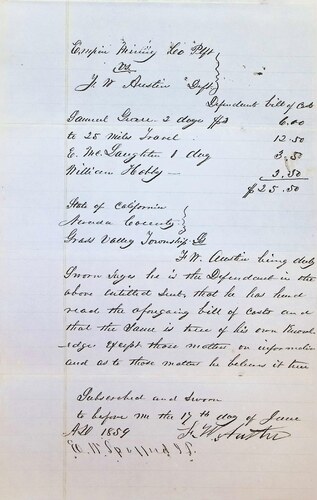 Empire Mining Co Plff
vs
F. W. Austin Deft
Defendant bill of Cost
Samuel 2 days $3 6.00
to 25 Miles Travel 12.50
E. McLaughlin 1 day 3.50
William Hobby 3.50
$25.50
State of California
Nevada County
Grass Valley Township
F. W. Austin being duly
Sworn Says he is the Defendant in the
above intitled Suit, that he has heard
read the aforegoing bill of Costs and
that the Same is true of his own Knowl
edge except those matter on information
and as to those matter he believes it true
Subscribed and Sworn
to before me the 17th day of June
AD 1859 F. W. Austin